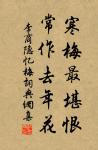 寒梅最堪恨
常作去年花
李商隐忆梅词典网喜